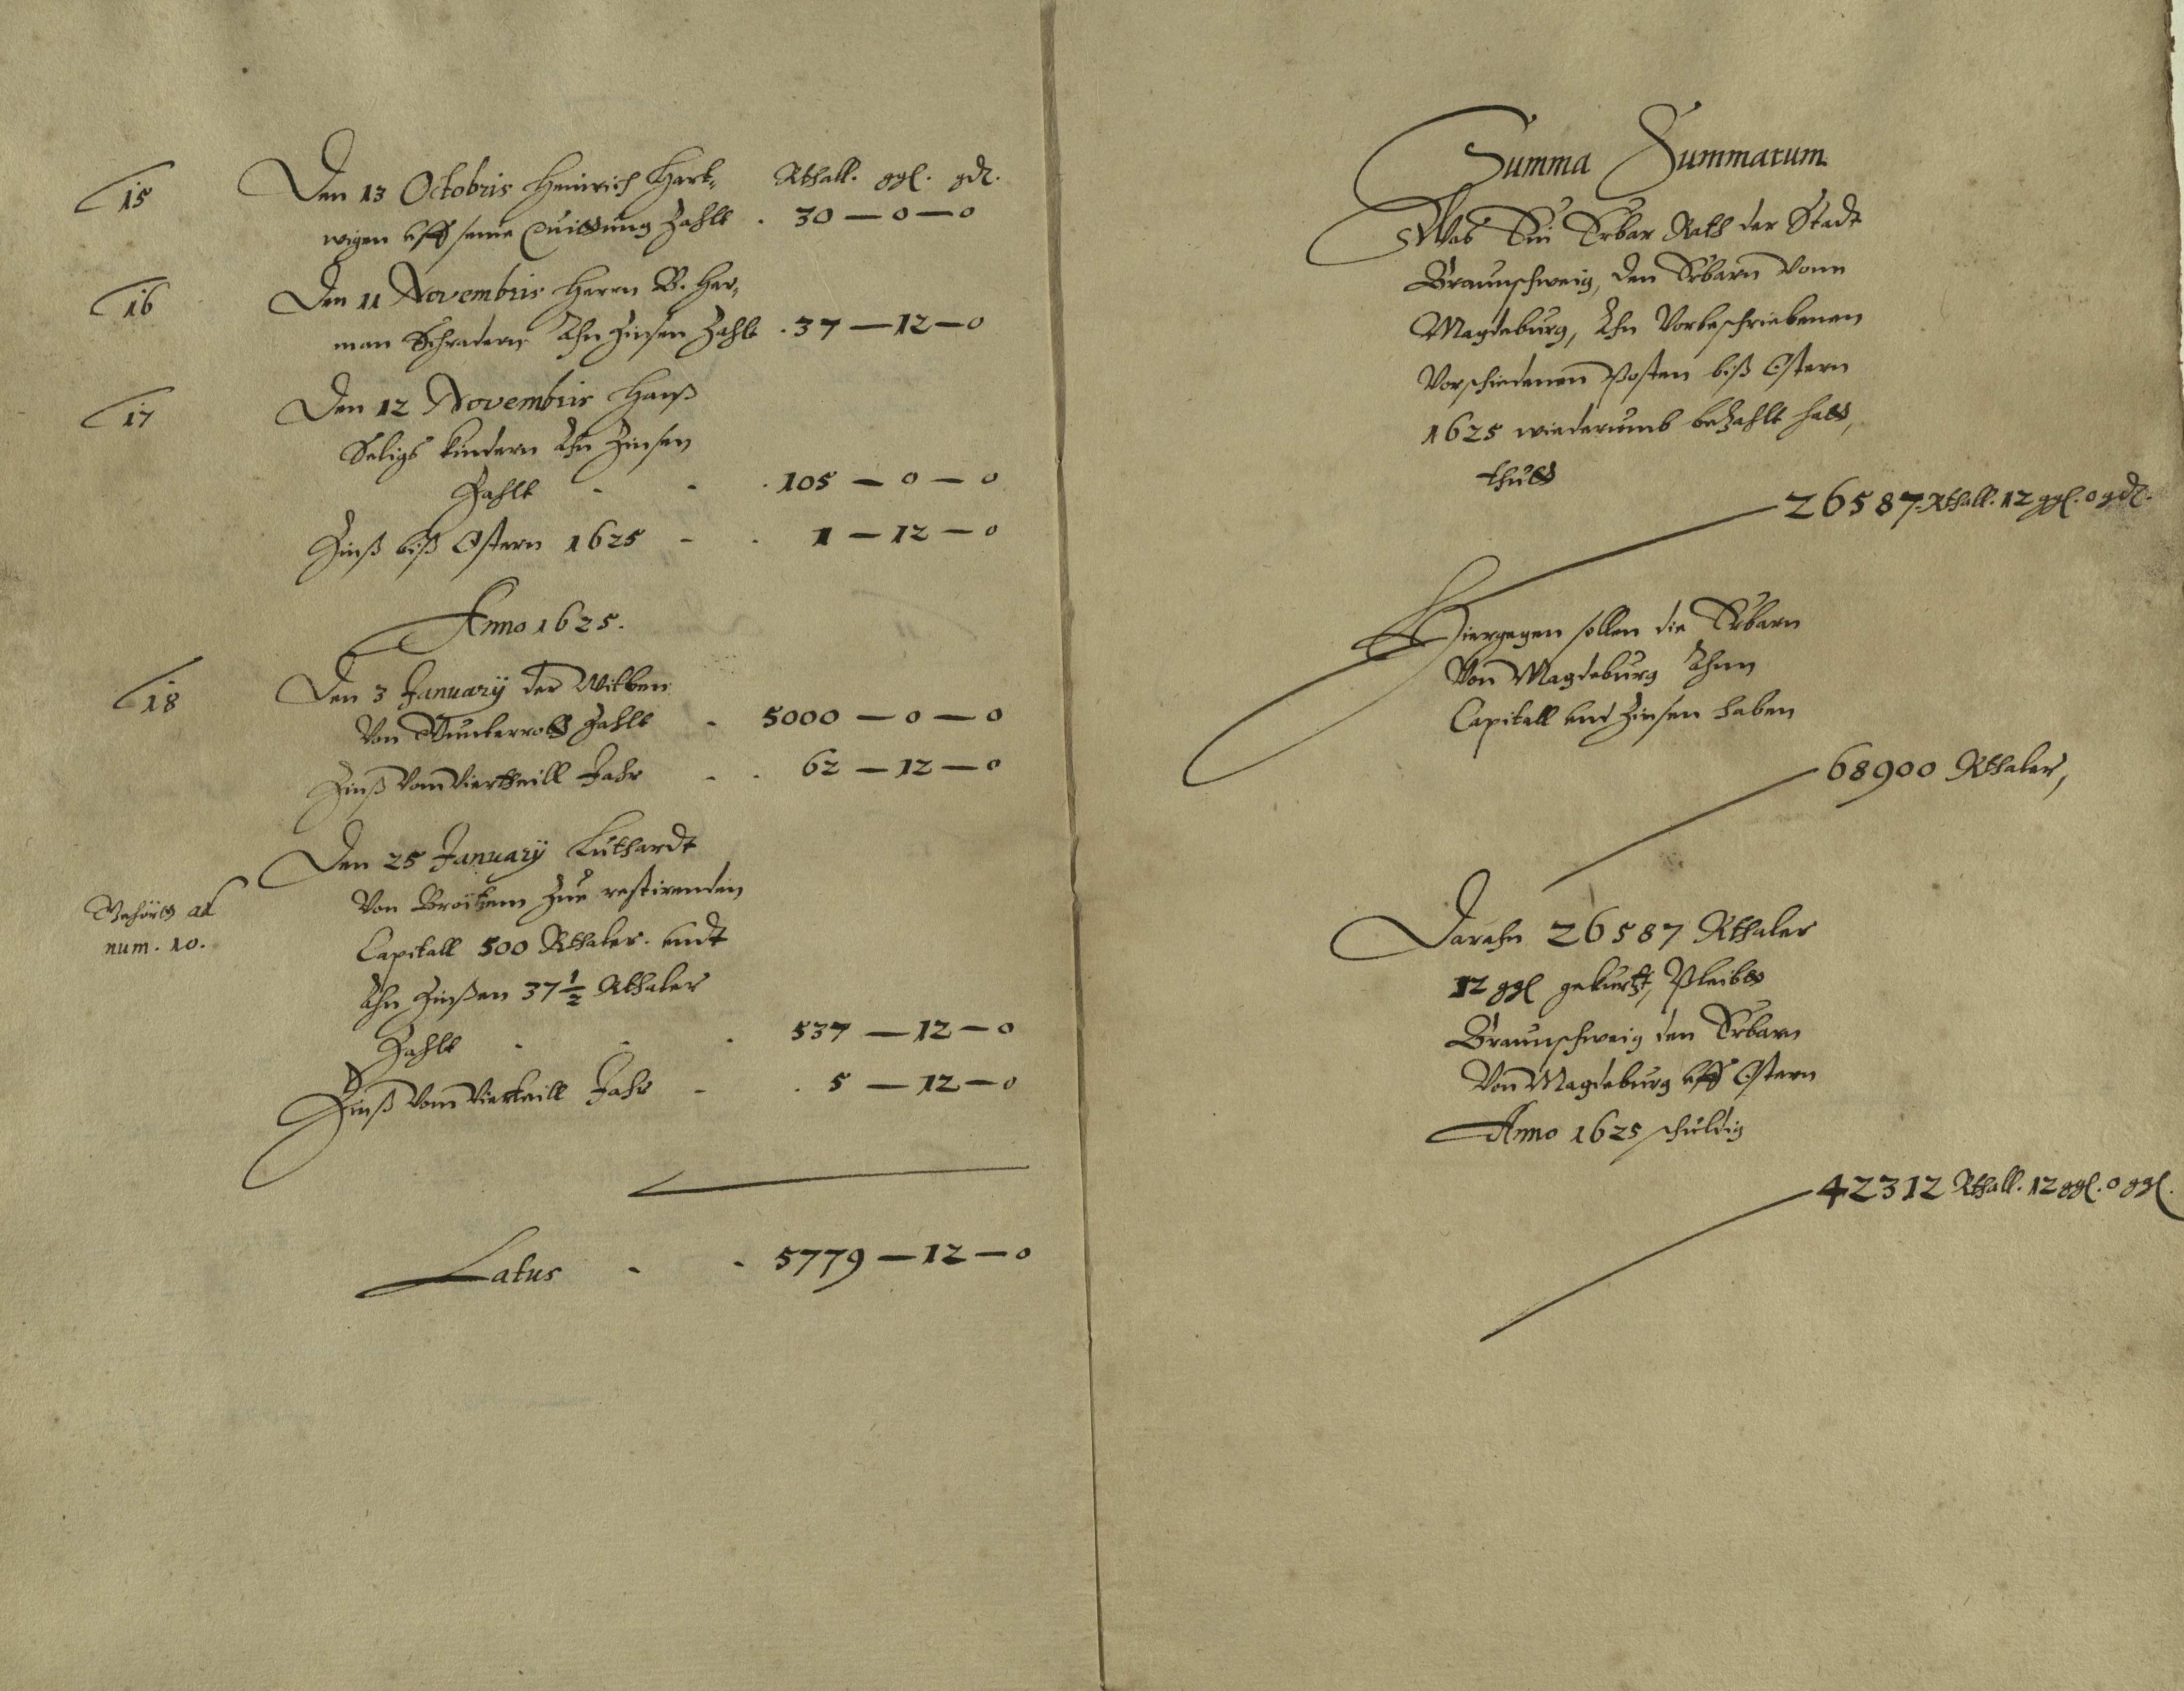 Rthall. ggl. gd.
15 Den 13 Octobris Heinrich Hart-
wigen vff seine Quittung Zahlt . 30 — 0 — 0
16 Den 11 Novembris Herrn B. Her-
man Schradern Ahn Zinsen Zahlt . 37 — 12 — 0
17 Den 12 Novembris Hanß
Seligs Kindern Ahn Zinsen
Zahlt - - . 105 — 0 — 0
Zinß biß Ostern 1625 - . 1 — 12 — 0
Anno 1625.
18 Den 3 January der Witben
Von Zahlt - 5000 — 0 — 0
Zinß Vom Viertheill Jahr - . 62 — 12 — 0
Den 25 January Luthardt
Gehört ad
num. 10.
Von Broitzem Zur restirenden
Capitall 500 Rthaler. vndt
Ahn Zinßen 37 1/2 Rthaler
Zahlt - - . 537 — 12 — 0
Zinß Vom Vierteill Jahr - . 5 — 12 — 0
Latus - - 5779 — 12 — 0
Summa Summarum
Was Ein Erbar Rath der Stadt
Braunschweig, den Erbarn Vonn
Magdeburg, Ahn Vorbeschriebenen
Vorschiedenen Posten biß Ostern
1625 wiederumb bezahlt hatt,
thutt
26587. Rthall. 12 ggl. 0 gd.
Hiergegen sollen die Erbarn
Von Magdeburg Ahnn
Capitall vnd Zinsen haben
68900 Rthaler,
Darahn 26587 Rthaler
12 ggl gekurtzt, Pleibtt
Braunschweig den Erbarn
Von Magdeburg vff Ostern
Anno 1625 schuldig
42312 Rthall. 12 ggl. 0 ggl.